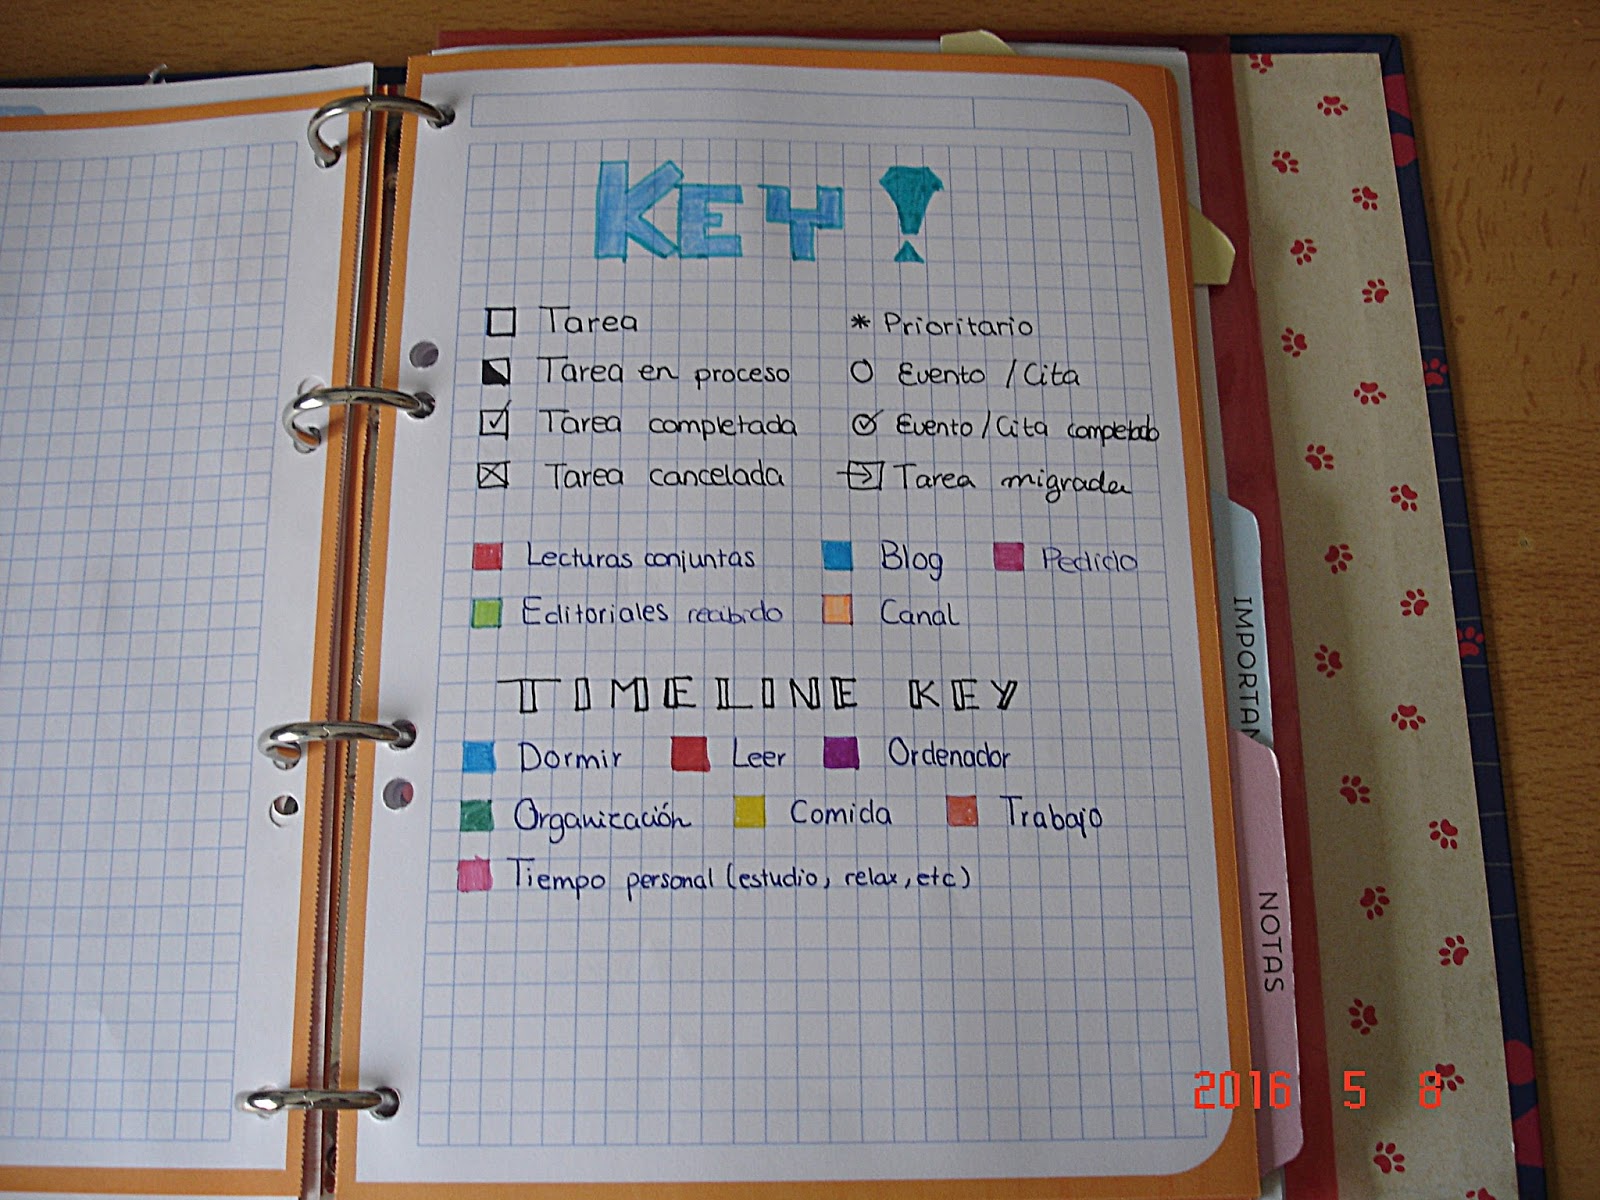 KEY!
Tarea * Prioritario
Tarea en proceso Evento / Cita
Tarea completada Evento/Cita completado
Tarea cancelada Tarea migrada
Lecturas conjuntas Blog Pedido
Editoriales recibido Canal
TIMELINE KEY
Dormir Leer Ordenador
Organización Comida Trabajo
Tiempo personal (estudio, relax, etc)
IMPORTAN
NOTAS
2016 5 8